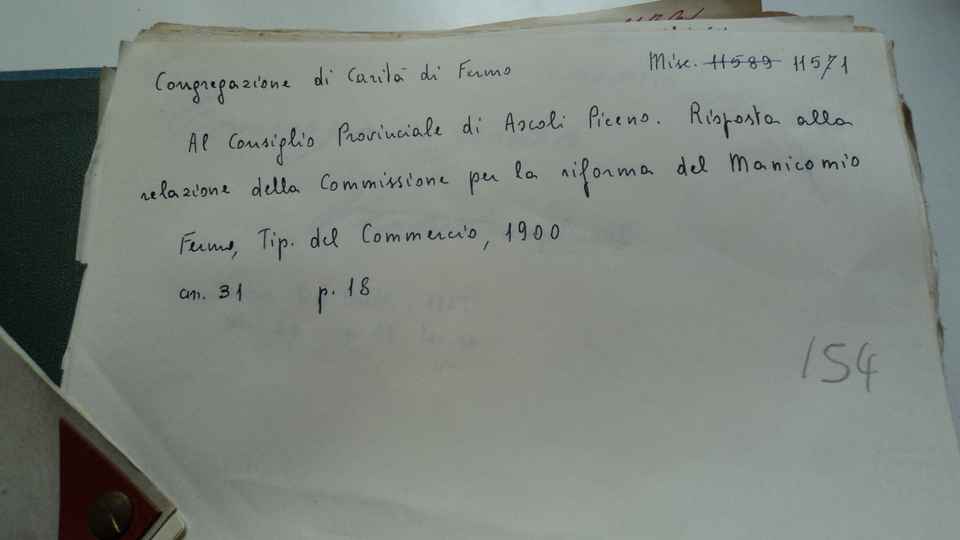 Congregazione di Carità di Fermo Misc. 11589 11571
Al Consiglio Provinciale di Ascoli Piceno. Risposta alla
relazione della Commissione per la riforma del Manicomio
Fermo, Tip. del Commercio, 1900
cm. 31 p. 18
154